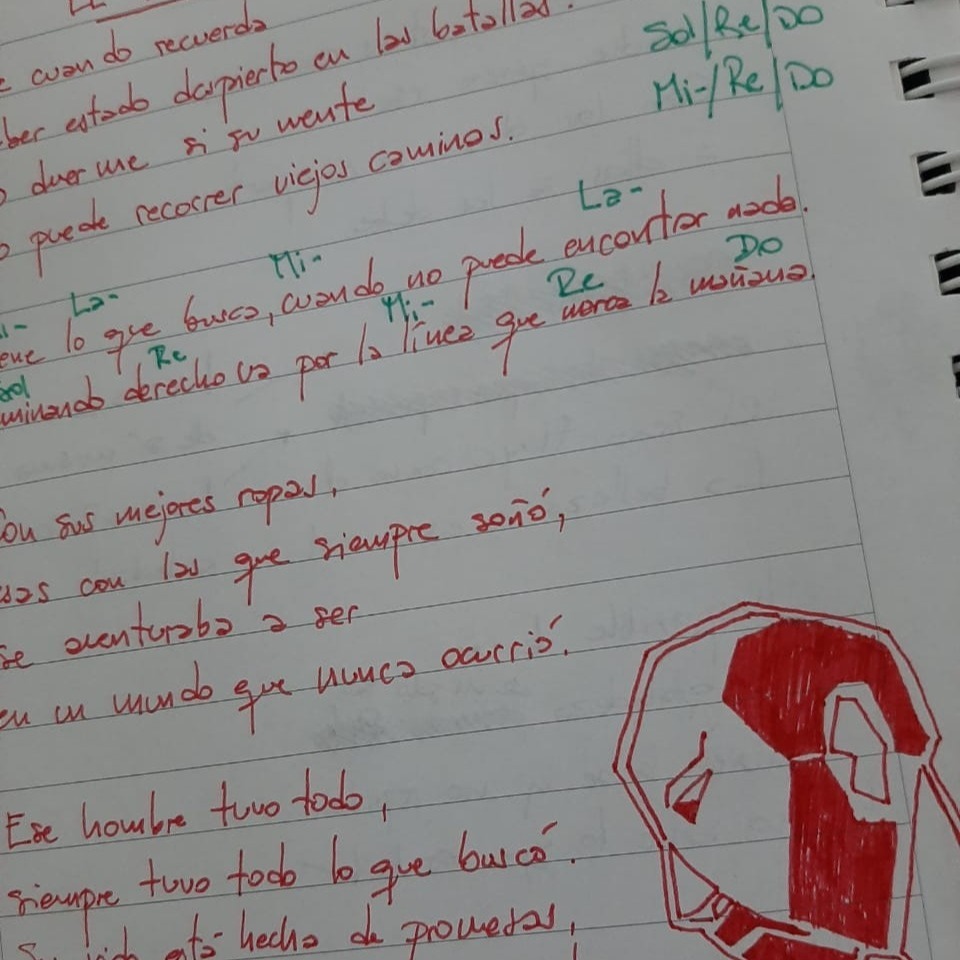 cuando recuerda
ber estado despierto en las batallas.
Sol/Re/DO
duerme si su mente
Mi-/Re/Do
puede recorrer viejos caminos.
La-
Mi-
La-
ene lo que busca, cuando no puede encontrar nada.
Sol Re Mi- Re DO
minando derecho va por la línea que marca la mañana.
Con sus mejores ropas,
sas con las que siempre soñó,
se aventuraba a ser
en un mundo que nunca ocurrió.
Ese hombre tuvo todo,
siempre tuvo todo lo que buscó.
Su vida está hecha de promesas,